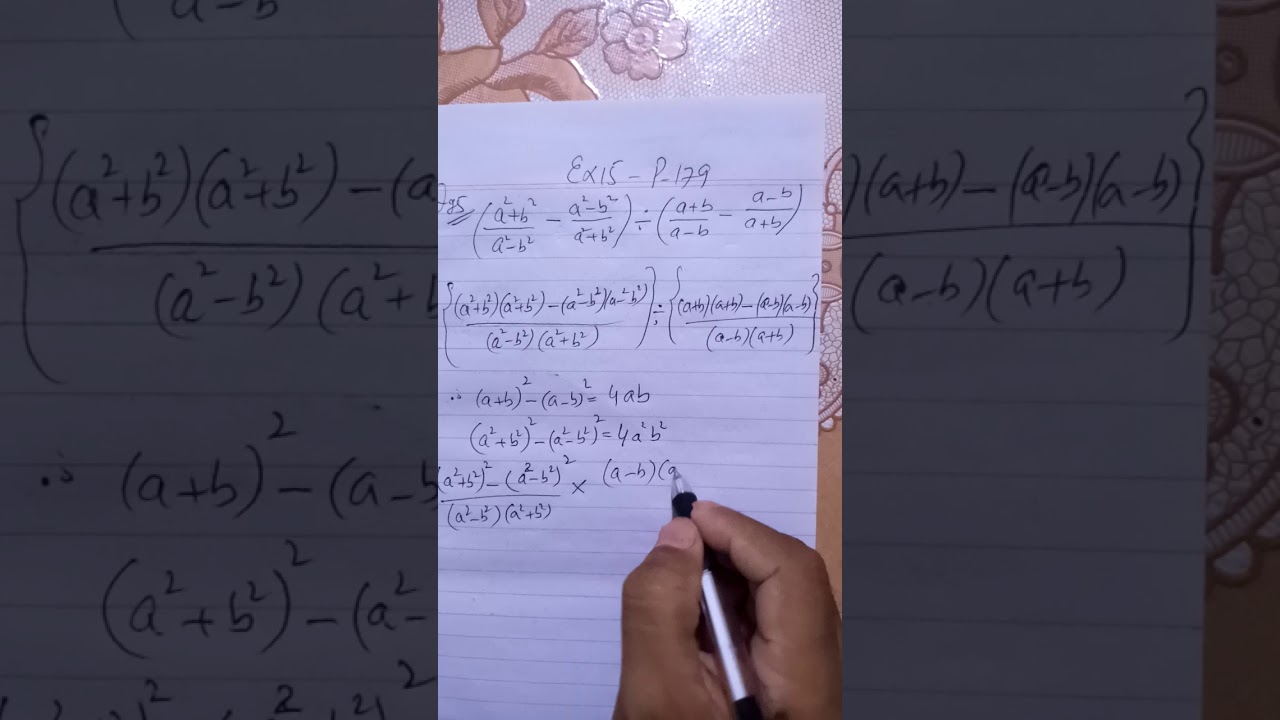 Ex15 - P-179
((a²+b²)/(a²-b²) - (a²-b²)/(a²+b²)) ÷ ((a+b)/(a-b) - (a-b)/(a+b))
{((a²+b²)(a²+b²) - (a²-b²)(a²-b²))/((a²-b²)(a²+b²))} ÷ {((a+b)(a+b) - (a-b)(a-b))/((a-b)(a+b))}
∴ (a+b)² - (a-b)² = 4ab
(a²+b²)² - (a²-b²)² = 4a²b²
((a²+b²)² - (a²-b²)²)/((a²-b²)(a²+b²)) × (a-b)(a